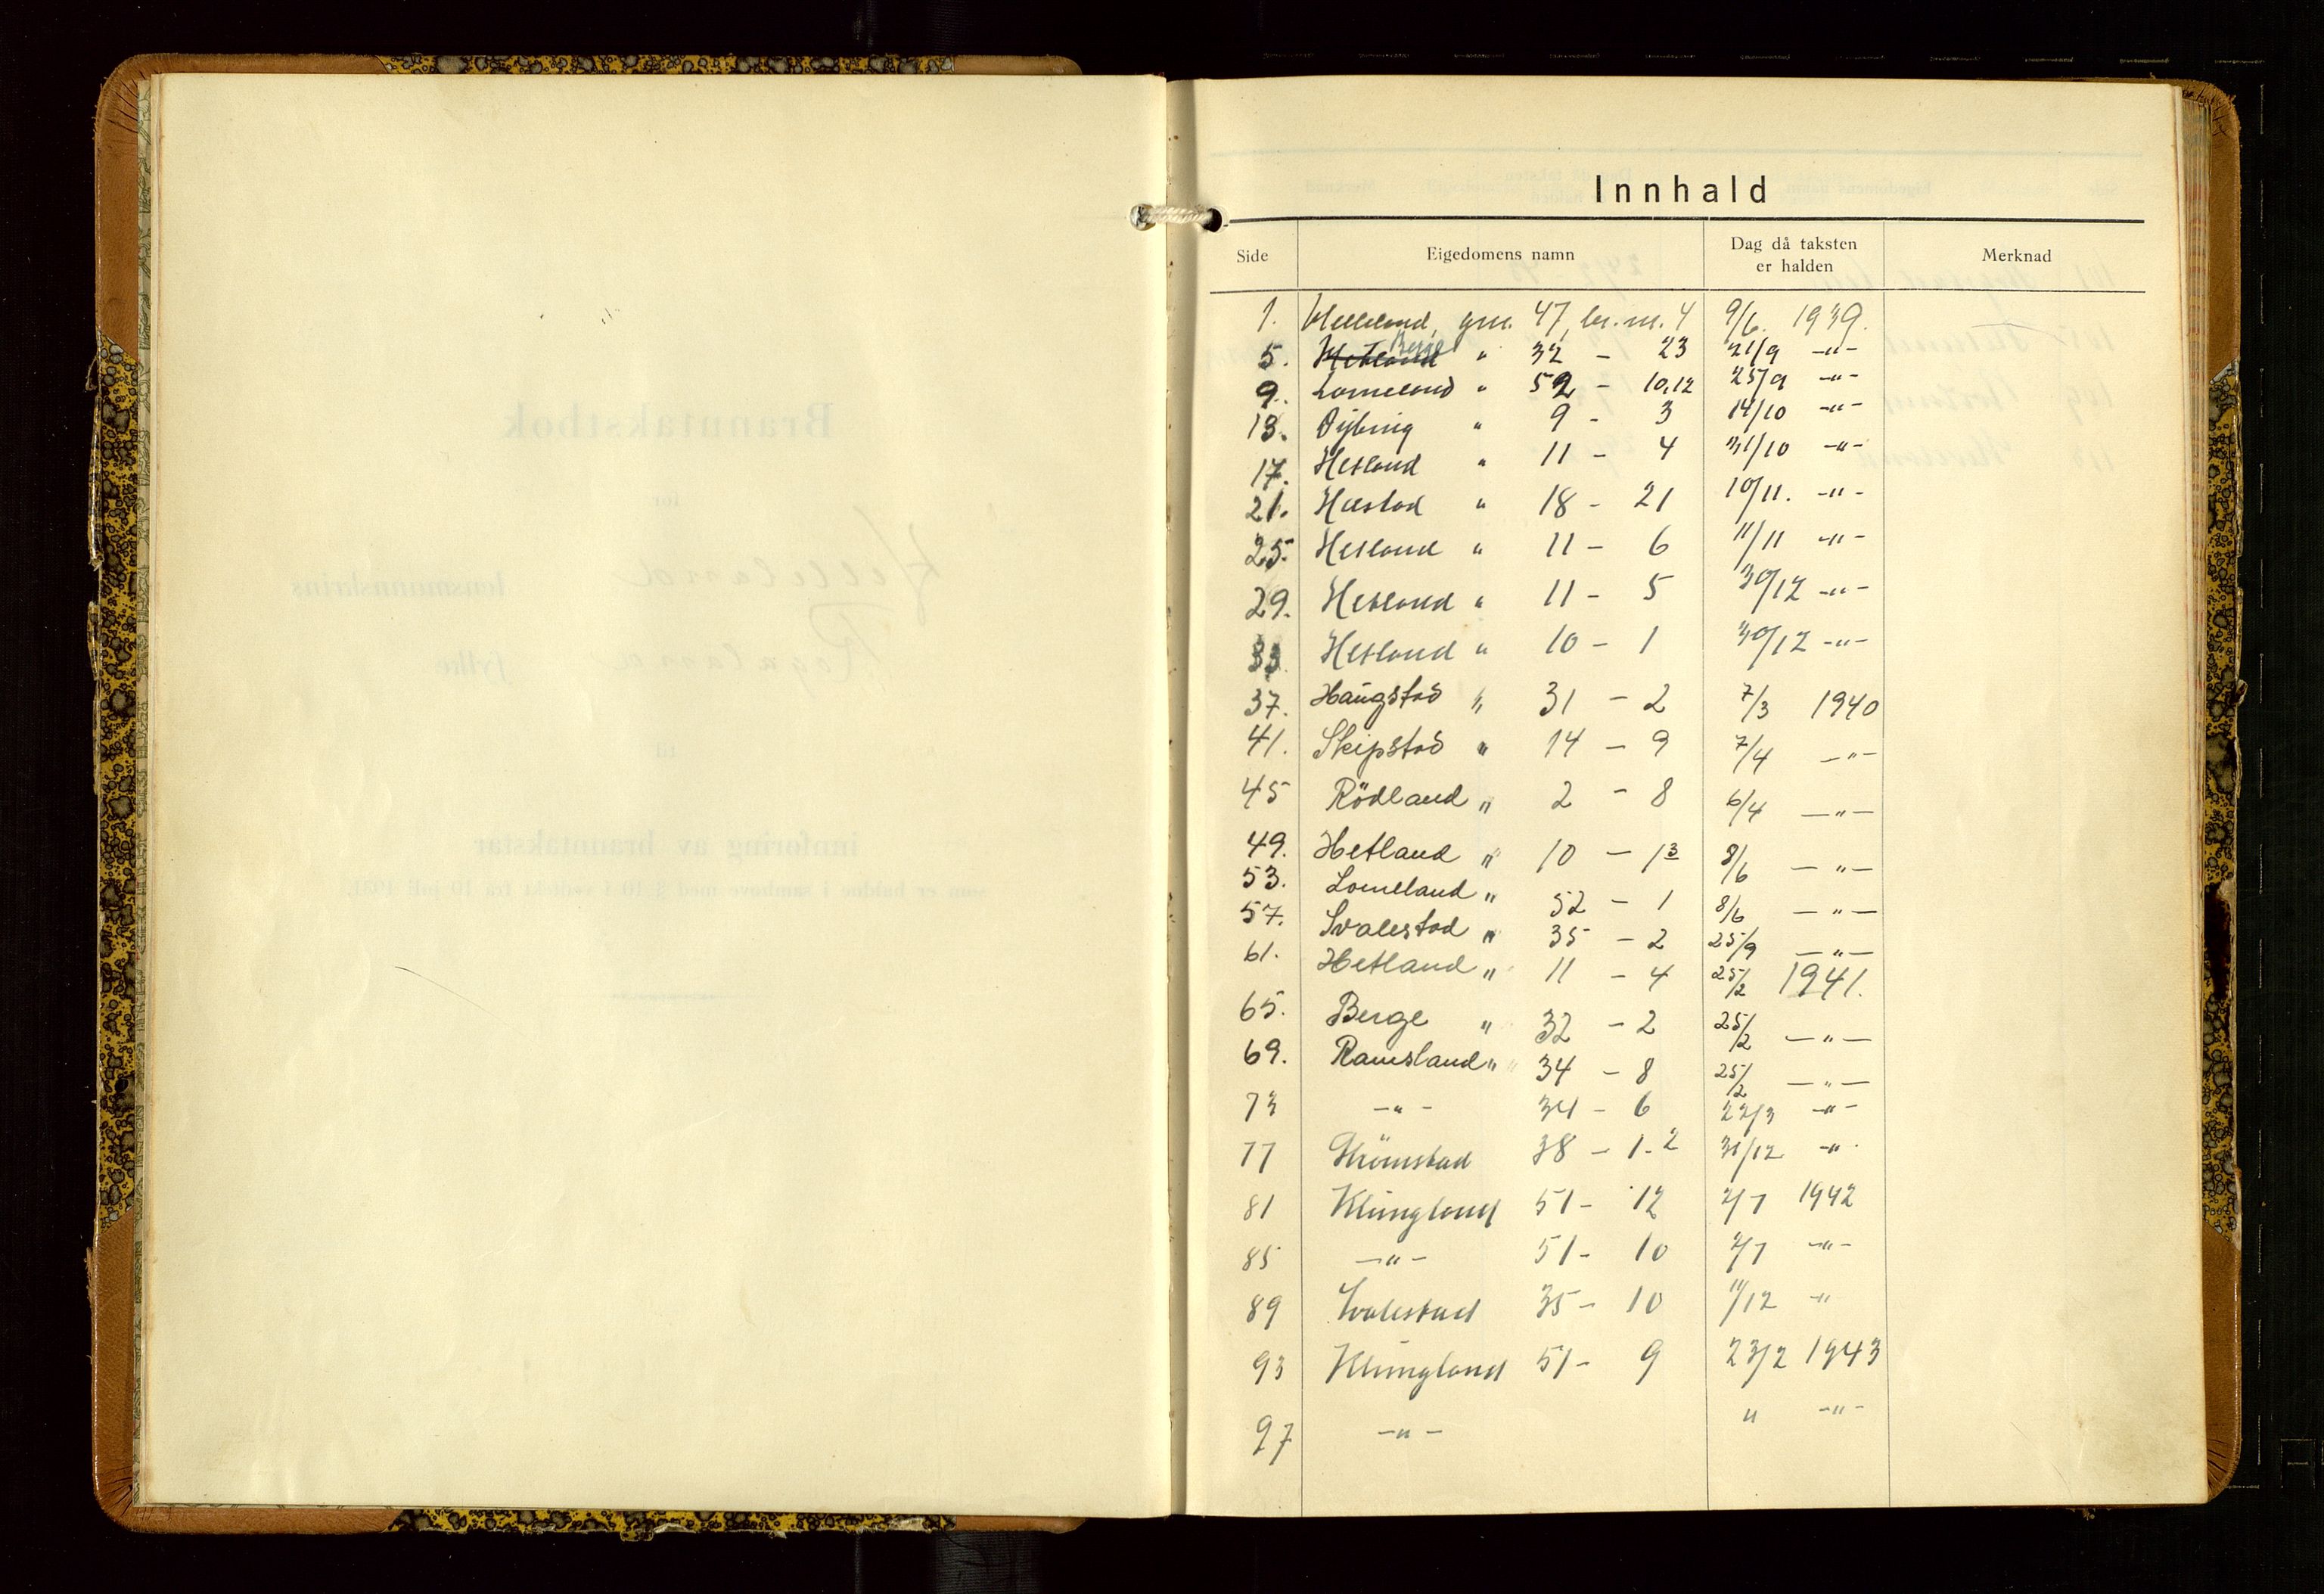 Innhald
Side Eigedomens namn Dag då taksten er halden Merknad
1. Helleland, gnr. 47, br. nr. 4 9/6. 1939.
5. Hetland Berge " 32 - 23 21/9 -"-
9. Lomeland " 52 - 10,12 25/9 -"-
13. Dybing " 9 - 3 14/10 -"-
17. Hetland " 11 - 4 31/10 -"-
21. " 18 - 21 10/11. -"-
25. Hetland " 11 - 6 11/11 -"-
29. Hetland " 11 - 5 30/12 -"-
33. Hetland " 10 - 1 30/12 -"-
37. Haugstad " 31 - 2 7/3 1940
41. Skipstad " 14 - 9 7/4 -"-
45 Rödland " 2 - 8 6/4 -"-
49. Hetland " 10 - 13 8/6 -"-
53. Lomeland " 52 - 1 8/6 -"-
57. Svalestad " 35 - 2 25/9 -"-
61. Hetland " 11 - 4 25/2 1941.
65. Berge " 32 - 2 25/2 -"-
69. Ramsland " 34 - 8 25/2 -"-
73 -"- 34 - 6 22/3 -"-
77 38 - 1-2 31/12 -"-
81 Klungland 51 - 12 2/7 1942
85 -"- 51 - 10 2/7 -"-
89 Svalestad 35 - 10 11/12 -"
93 Klungland 51 - 9 23/2 1943
97 -"- " -"-